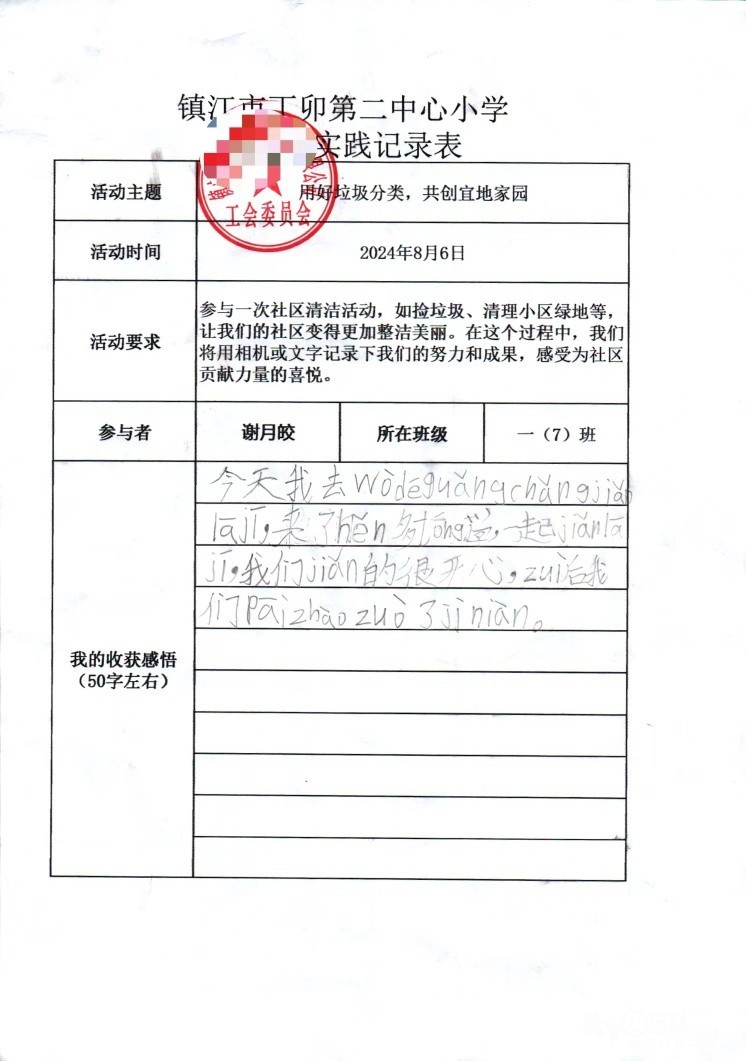 镇江市丁卯第二中心小学
实践记录表
工会委员会
活动主题
用好垃圾分类，共创宜地家园
活动时间
2024年8月6日
活动要求
参与一次社区清洁活动，如捡垃圾、清理小区绿地等，
让我们的社区变得更加整洁美丽。在这个过程中，我们
将用相机或文字记录下我们的努力和成果，感受为社区
贡献力量的喜悦。
参与者
谢月皎
所在班级
一（7）班
我的收获感悟
（50字左右）
今天我去wòdēguǎngchǎngjiǎn
lājī，来了hěn多tóng，一起jiǎnlā
jī，我们jiǎn的很开心，zuì后我
们pāizhàozuò了jìniàn。